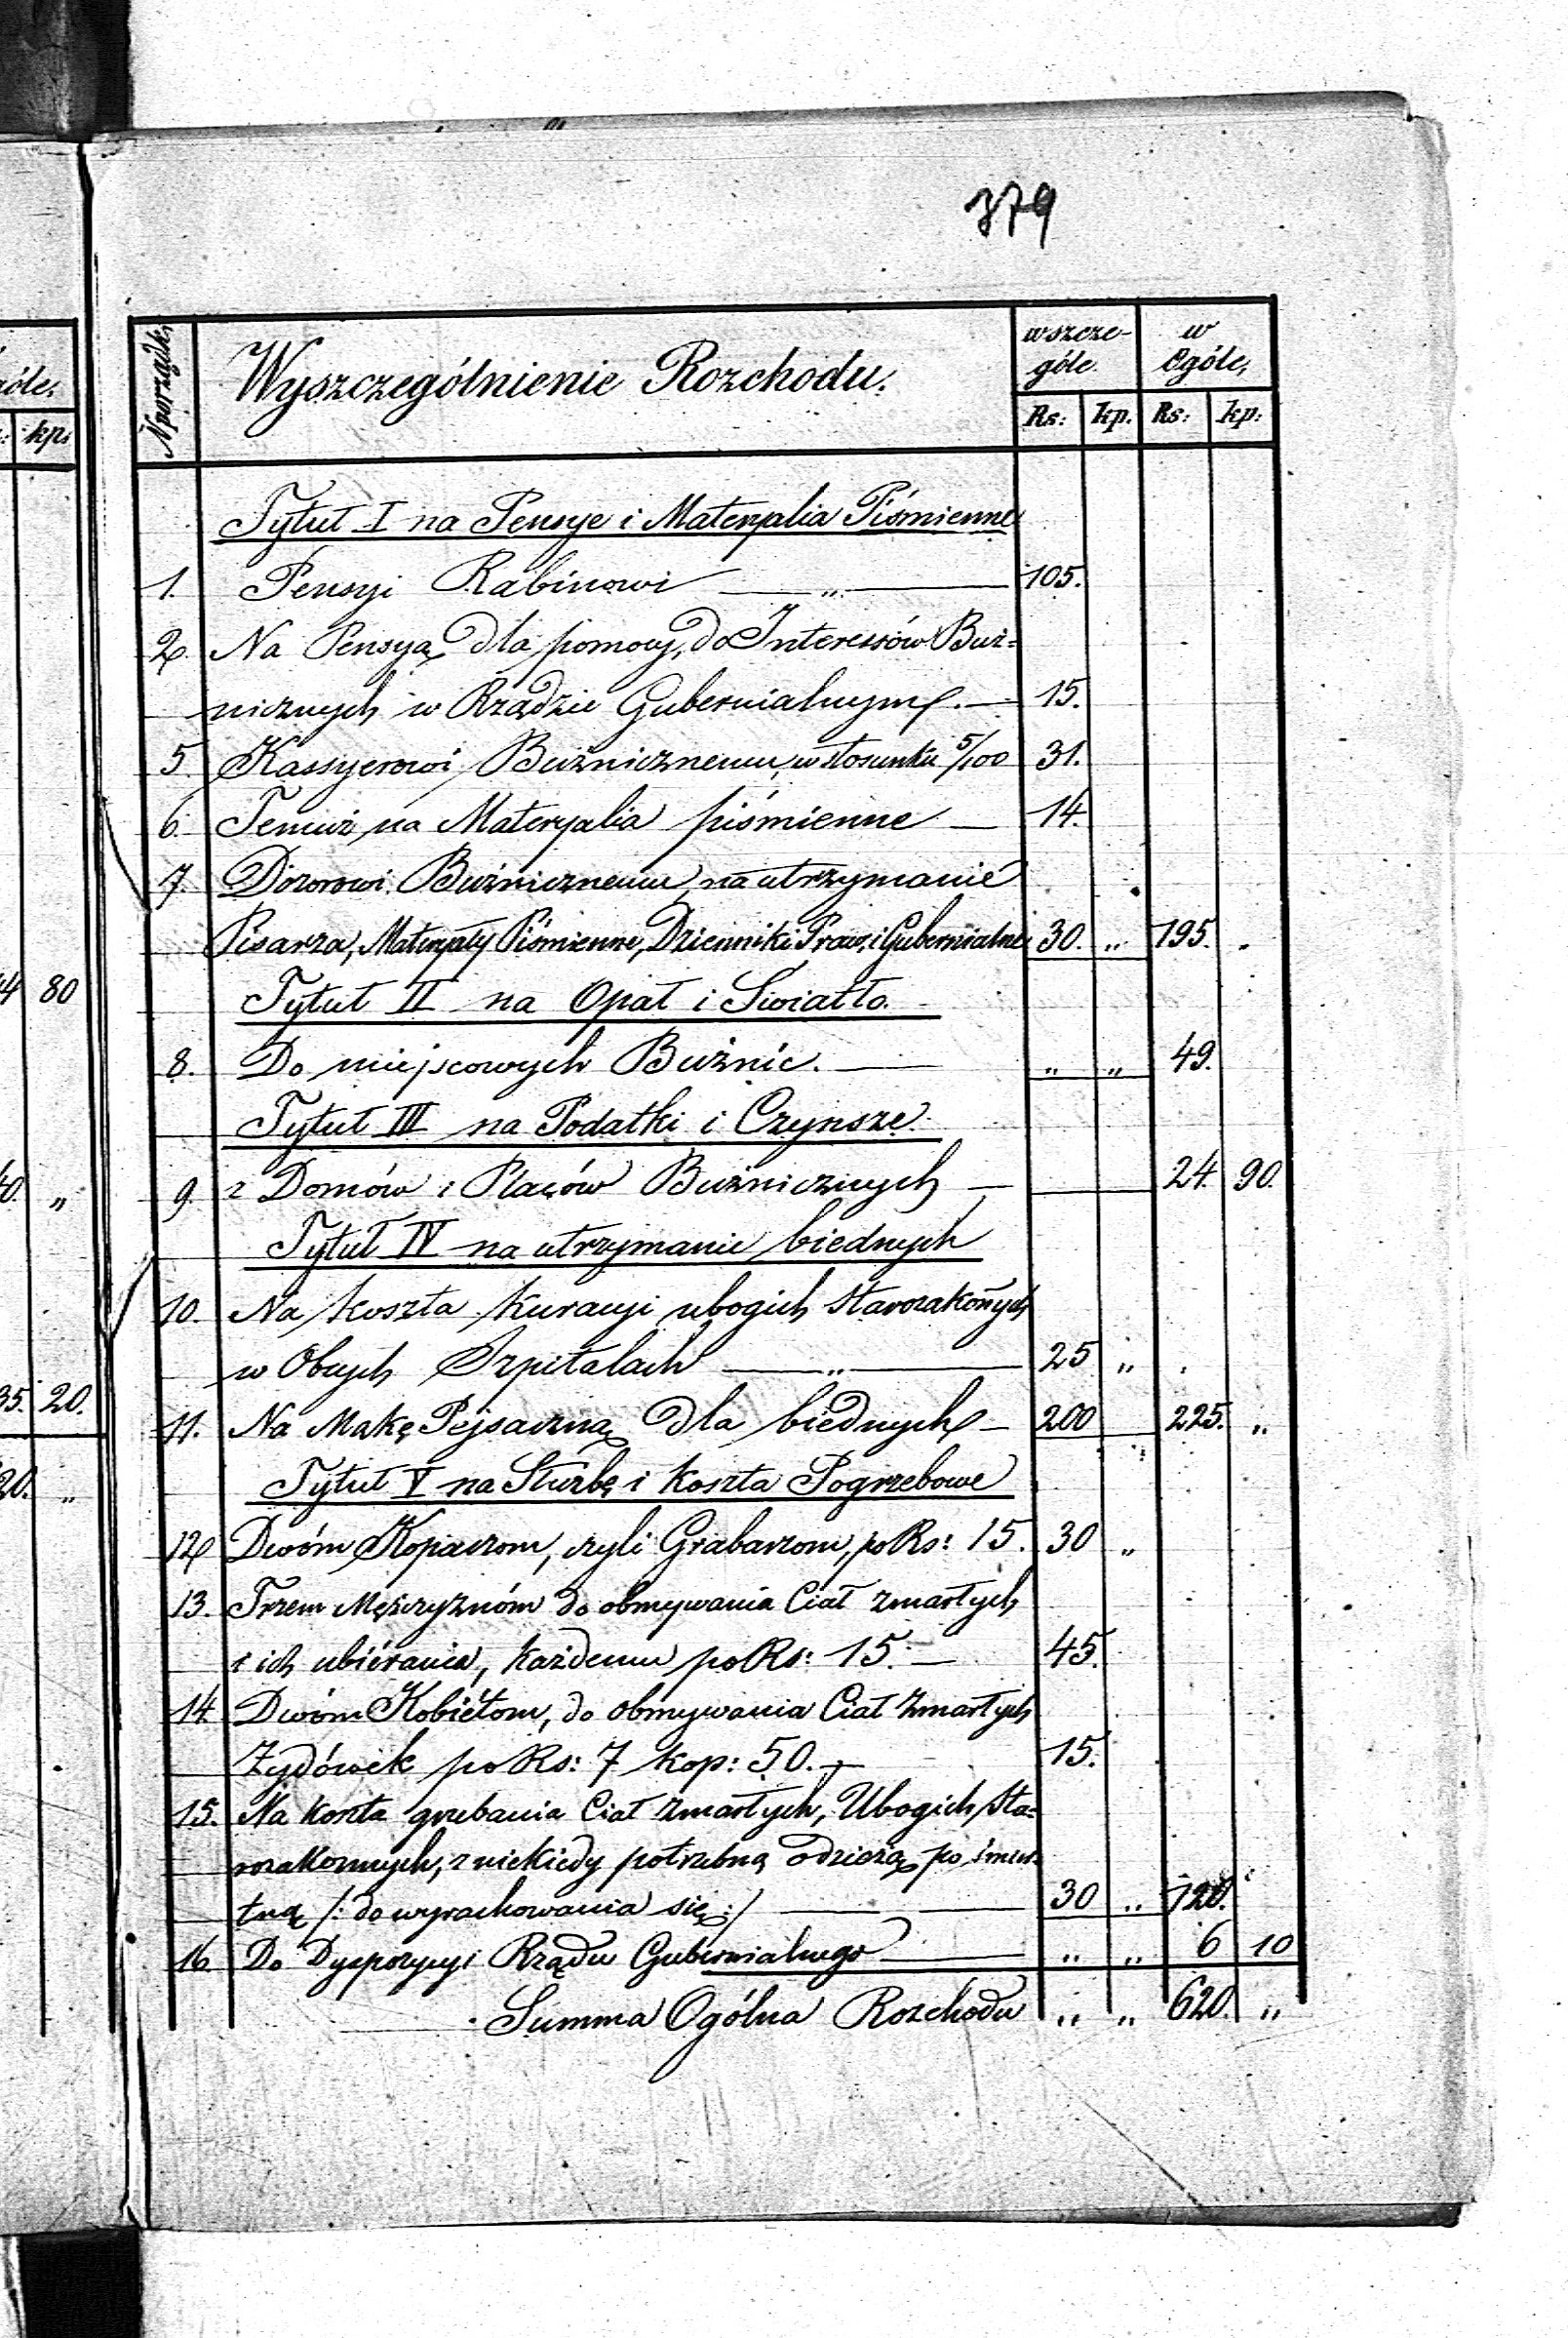 379
góle,
kp:
80
"
35. 20.
20. "
N porządk,
Wyszczególnienie Rozchodu.
wszcze-
góle.
w
Ogóle,
Rs: kp. Rs: kp:
Tytuł I na Pensye i Materyalia Piśmienne
1. Pensyi Rabinowi " 105.
2. Na Pensyą dla pomocy, do Interessów Buż=
nicznych w Rządzie Gubernialnym. 15.
5. Kassyerowi Bużnicznemu, w stosunku 5/100 31.
6. Temuż na Materyalia piśmienne 14.
7. Dozorowi Bużnicznemu, na utrzymanie
Pisarza, Materyały Piśmienne, Dzienniki Praw, i Gubernialne 30. " 195.
Tytuł II na Opał i Swiatło.
8. Do miejscowych Bużnic. " " 49.
Tytuł III na Podatki i Czynsze
9. z Domów i Placów Bużnicznych 24. 90.
Tytuł IV na utrzymanie biednych
10. Na koszta kuracyi ubogich starozakońych
w Obcych Szpitalach " 25 "
11. Na Mąkę Pejsaczną dla biednych 200 225. "
Tytuł V na Służbę i koszta Pogrzebowe
12 Dwóm Kopaczom, czyli Grabarzom, po Rs: 15. 30 "
13. Trzem Mężczyznóm do obmywania Ciał zmarłych
i ich ubiérania, każdemu po Rs: 15. 45.
14 Dwóm Kobiétom, do obmywania Ciał zmarłych
Żydówek po Rs: 7 kop: 50. 15.
15. Na koszta grzebania Ciał zmarłych, Ubogich, Sta=
rozakonnych, z niekiedy potrzebną odzieżą po śmier=
tną /: do wyrachowania się :/ 30 " 120.
16 Do Dyspozycyi Rządu Gubernialnego " " 6 10
Summa Ogólna Rozchodu " " 620. "